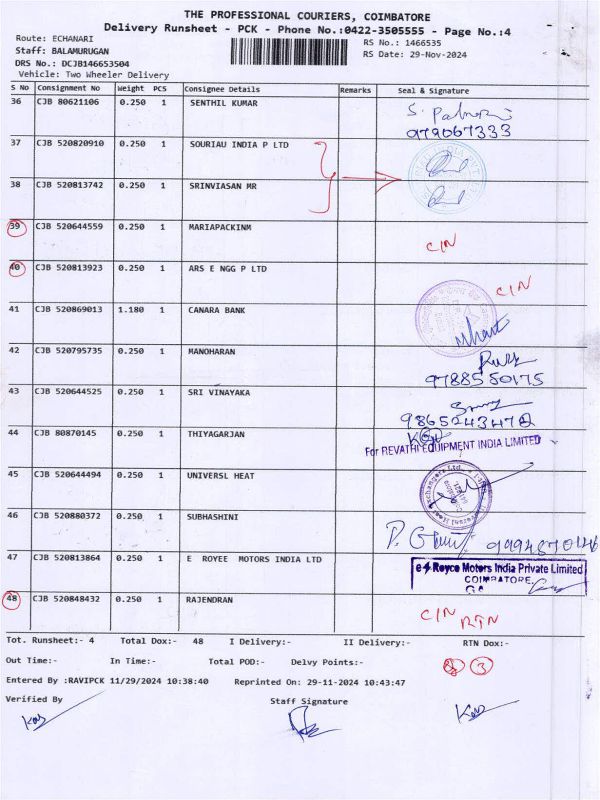 THE PROFESSIONAL COURIERS, COIMBATORE
Delivery Runsheet - PCK - Phone No.:0422-3505555 - Page No.:4
Route: ECHANARI
RS No.: 1466535
Staff: BALAMURUGAN
RS Date: 29-Nov-2024
DRS No.: DCJB146653504
Vehicle: Two Wheeler Delivery
S No Consignment No Weight PCS Consignee Details Remarks Seal & Signature
36 CJB 80621106 0.250 1 SENTHIL KUMAR
979067333
37 CJB 520820910 0.250 1 SOURIAU INDIA P LTD
38 CJB 520813742 0.250 1 SRINVIASAN MR
39 CJB 520644559 0.250 1 MARIAPACKINM
CIN
40 CJB 520813923 0.250 1 ARS E NGG P LTD
CIN
41 CJB 520869013 1.180 1 CANARA BANK
42 CJB 520795735 0.250 1 MANOHARAN
9788550175
43 CJB 520644525 0.250 1 SRI VINAYAKA
44 CJB 80870145 0.250 1 THIYAGARJAN
For REVATHI EQUIPMENT INDIA LIMITED
45 CJB 520644494 0.250 1 UNIVERSL HEAT
46 CJB 520880372 0.250 1 SUBHASHINI
47 CJB 520813864 0.250 1 E ROYEE MOTORS INDIA LTD
e Royce Motors India Private Limited
COIMBATORE
48 CJB 520848432 0.250 1 RAJENDRAN
CIN RTN
Tot. Runsheet:- 4 Total Dox:- 48 I Delivery:- II Delivery:- RTN Dox:-
Out Time:- In Time:- Total POD:- Delvy Points:-
3
Entered By :RAVIPCK 11/29/2024 10:38:40 Reprinted On: 29-11-2024 10:43:47
Verified By Staff Signature